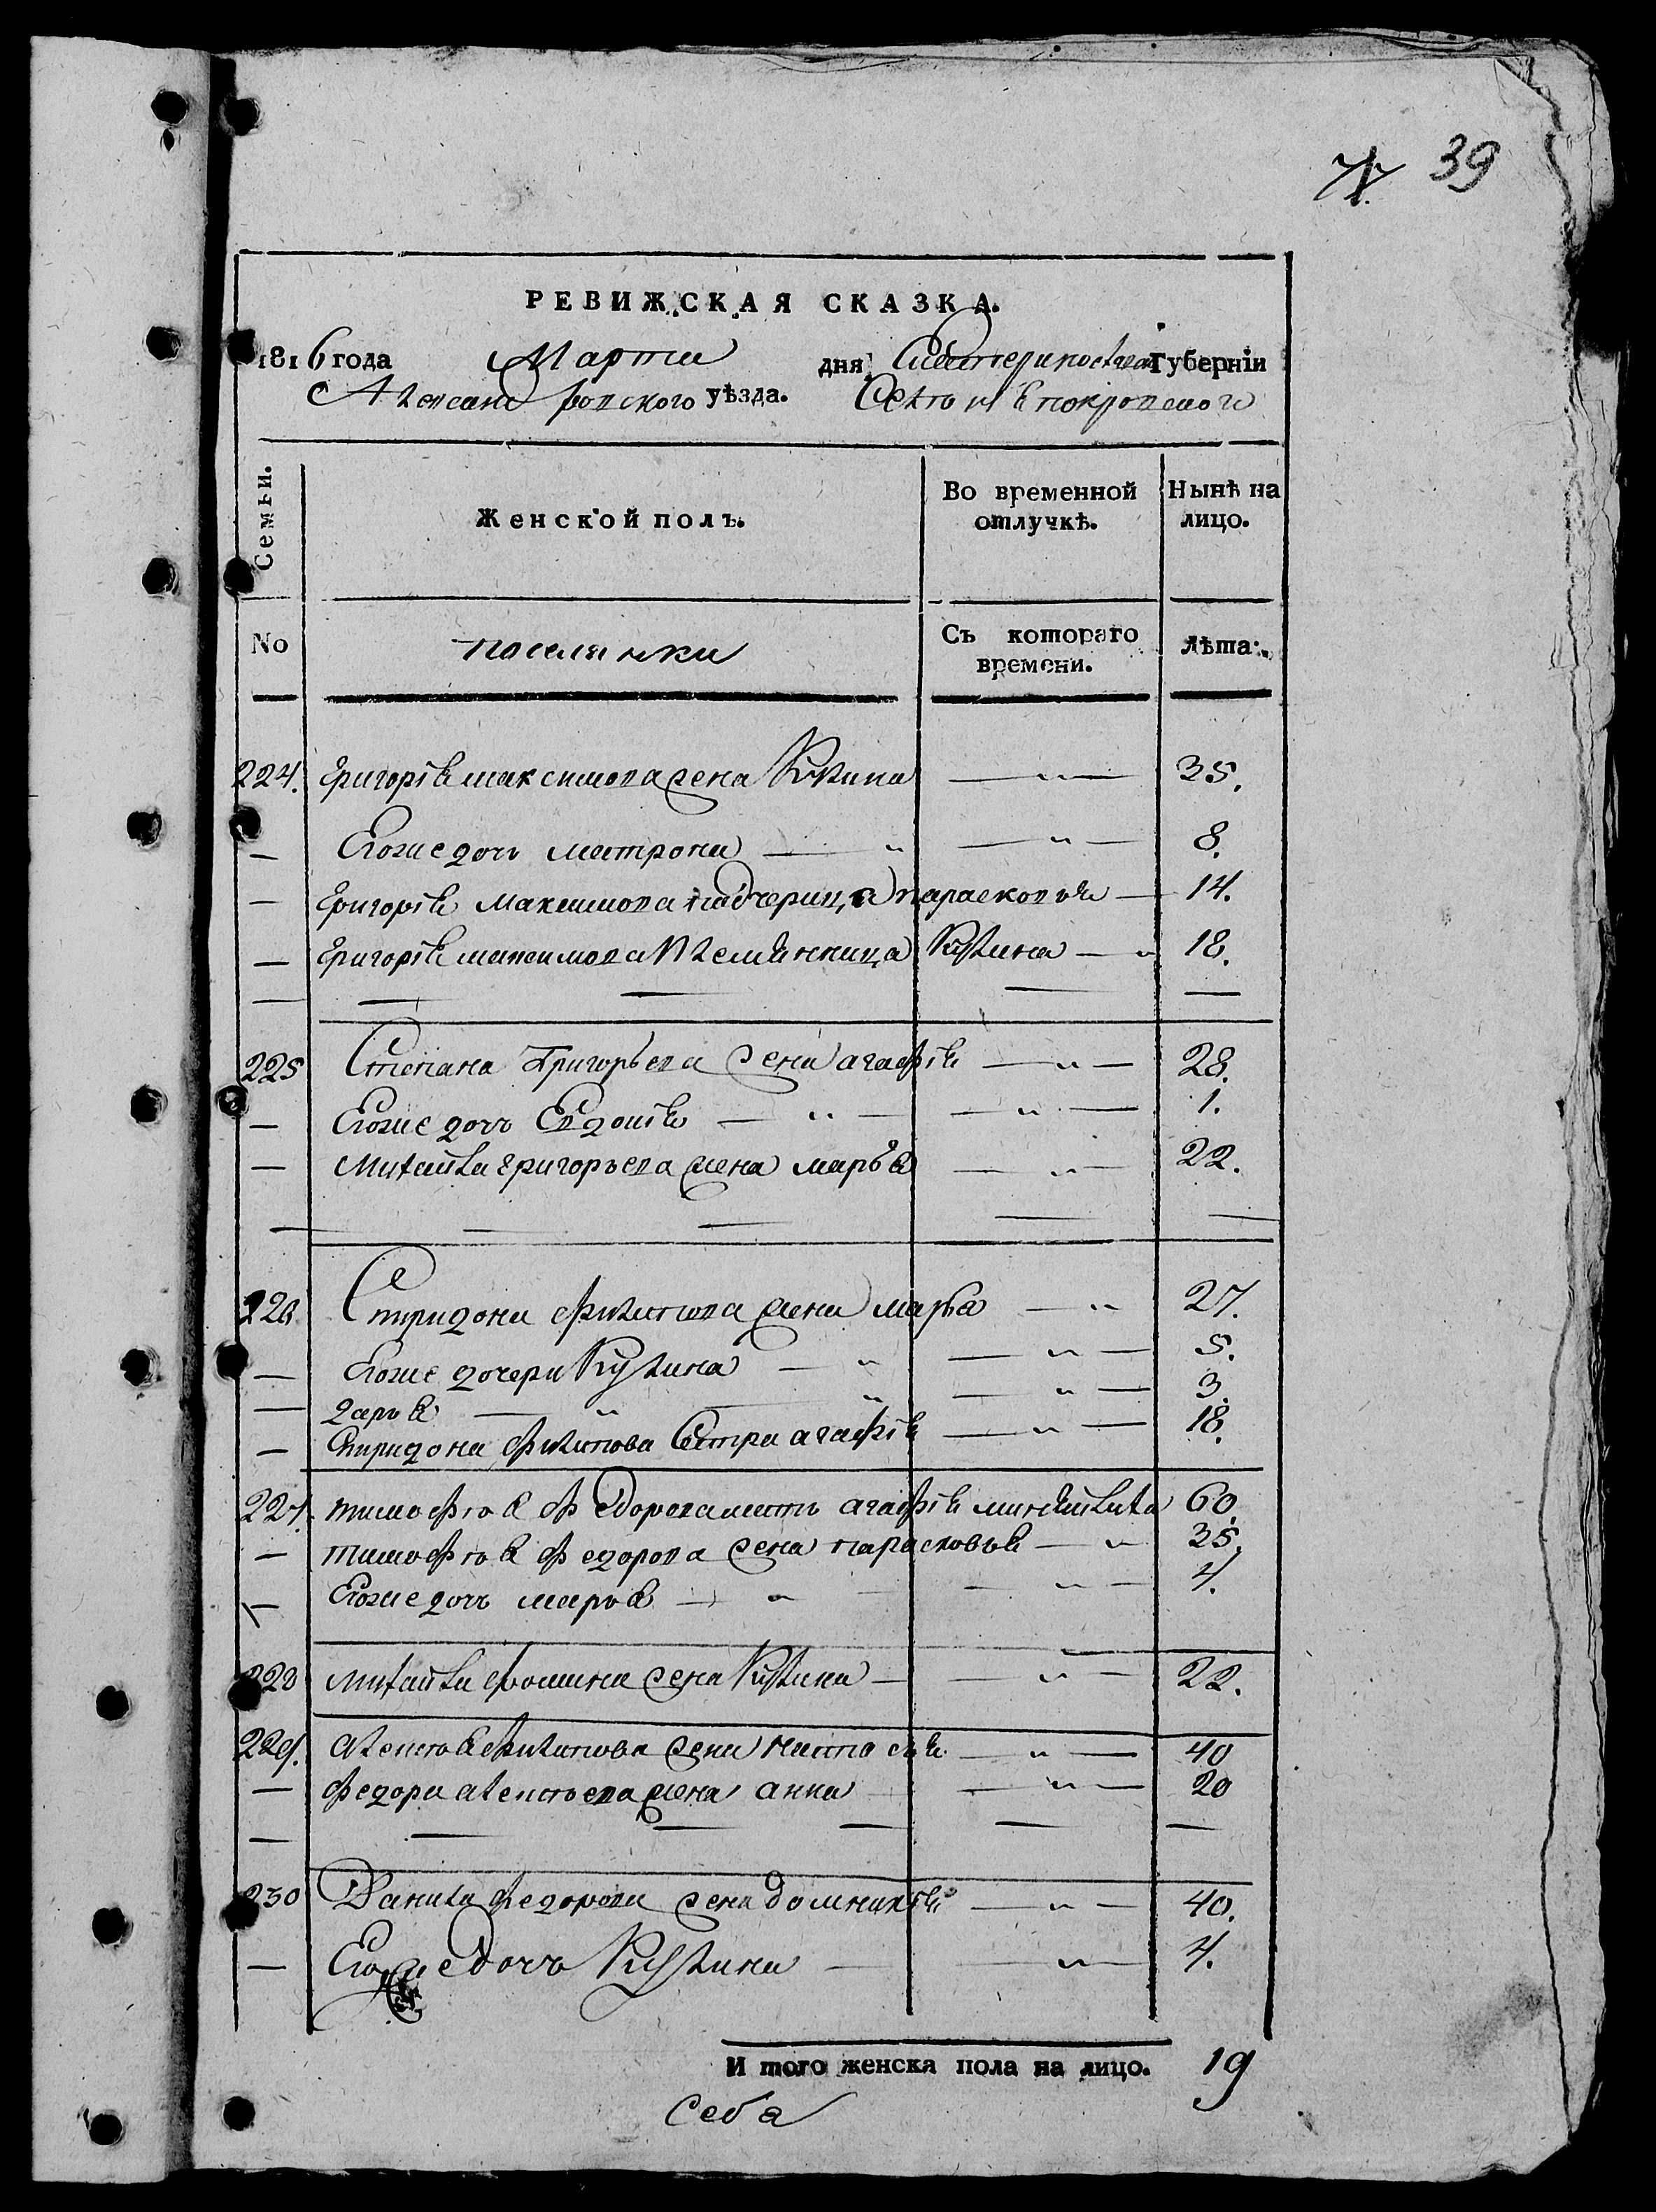 39
РЕВИЖСКАЯ СКАЗКА.
1816 года Марта дня Екатеринославской губерніи
Александровского уѣзда. Села Ново покровского
Семьи. Женской полъ. Во временной отлучкѣ. Нынѣ на лицо.
No поселянки Съ котораго времени. лѣта.
224. Григорія максимова жена Кулина — „ — 35.
— Егоже дочь матрона — „ — „ — 8.
— Григорія Максимова падчерица парасковья — 14.
— Григорія максимова племянница Кулина — „ 18.
225 Степана Григорьева жена агафія — „ — 28.
— Егоже дочь Евдокія — „ — — „ — 1.
— Михайла григорьева жена марья — „ — 22.
226 Спиридона филипова жена марья — „ 27.
— Егоже дочери Кулина — „ — „ — 5.
— дарья — „ — „ — „ — 3.
— Спиридона филипова Сестра агафія — „ — 18.
227. тимофея федорова мать агафія 60.
— тимофея федорова жена парасковья — „ 35.
— Егоже дочь марья — „ — „ — 4.
228 михайла фомина жена Кулина — — „ — 22.
229. алексея филипова жена настасья — „ — 40
— федора алексеева жена анна — „ — 20
230 Данила федорова жена домникія — „ — 40.
— Егоже дочь Кулина — — „ — 4.
И того женска пола на лицо. 19